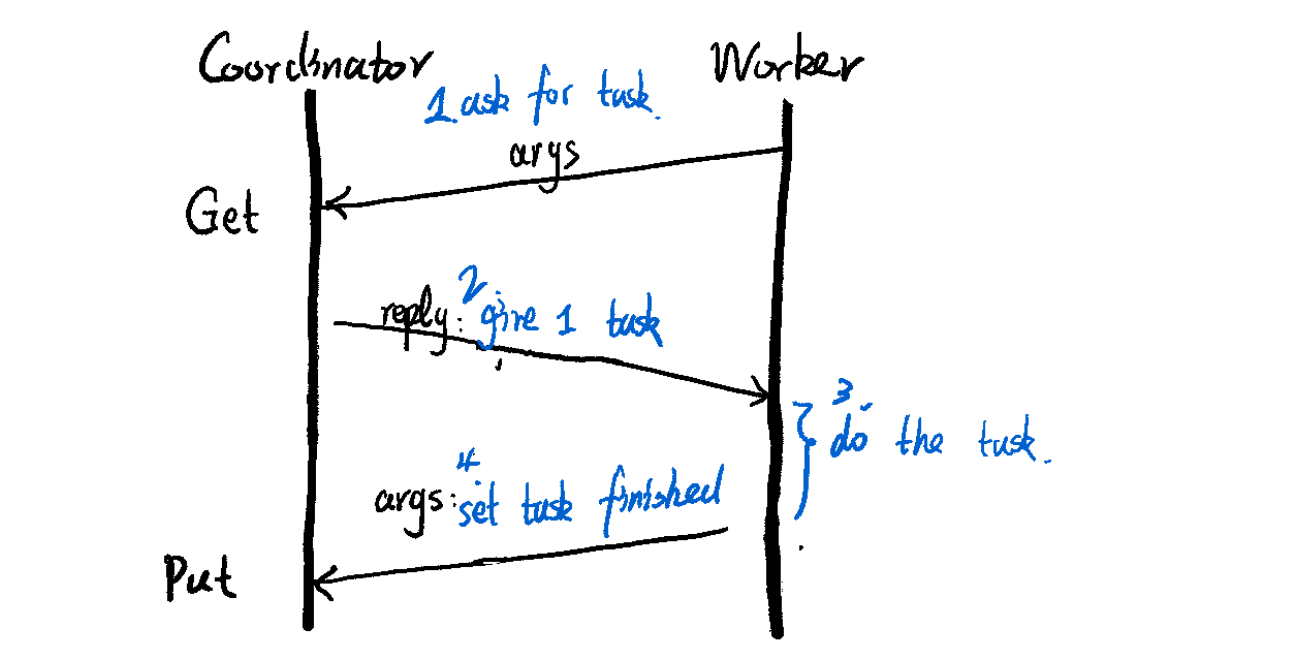 Coordinator
Worker
1. ask for task.
args
Get
reply: 2. give 1 task
3. do the task.
args: 4. set task finished
Put